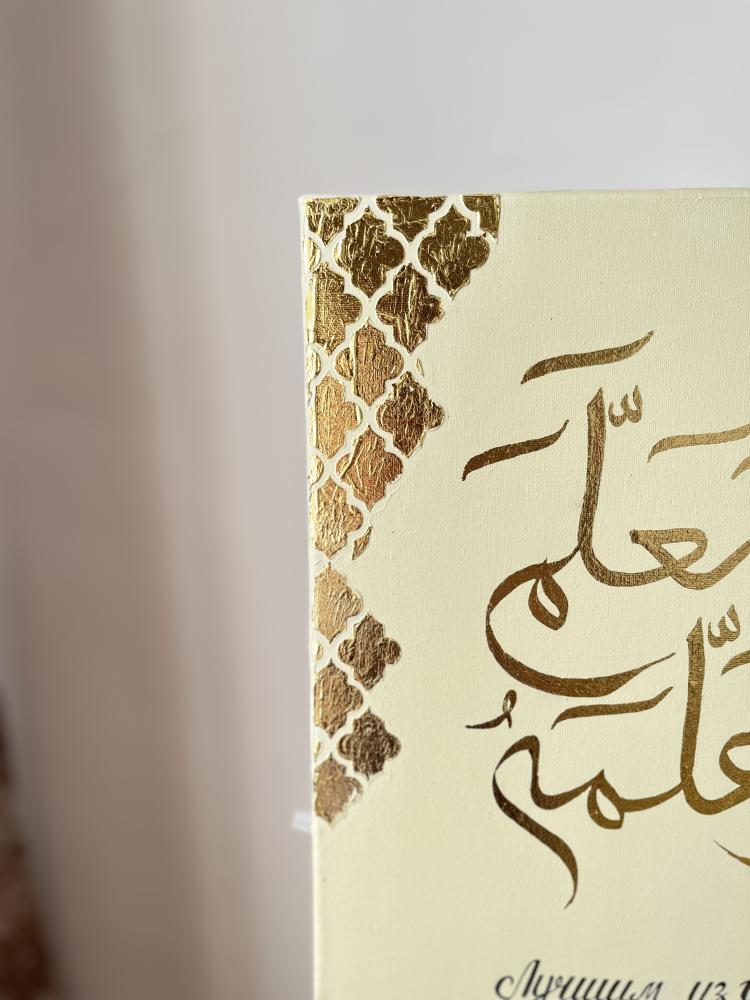 تَعَلَّمَ
عَلَّمَهُ
Лучшим из